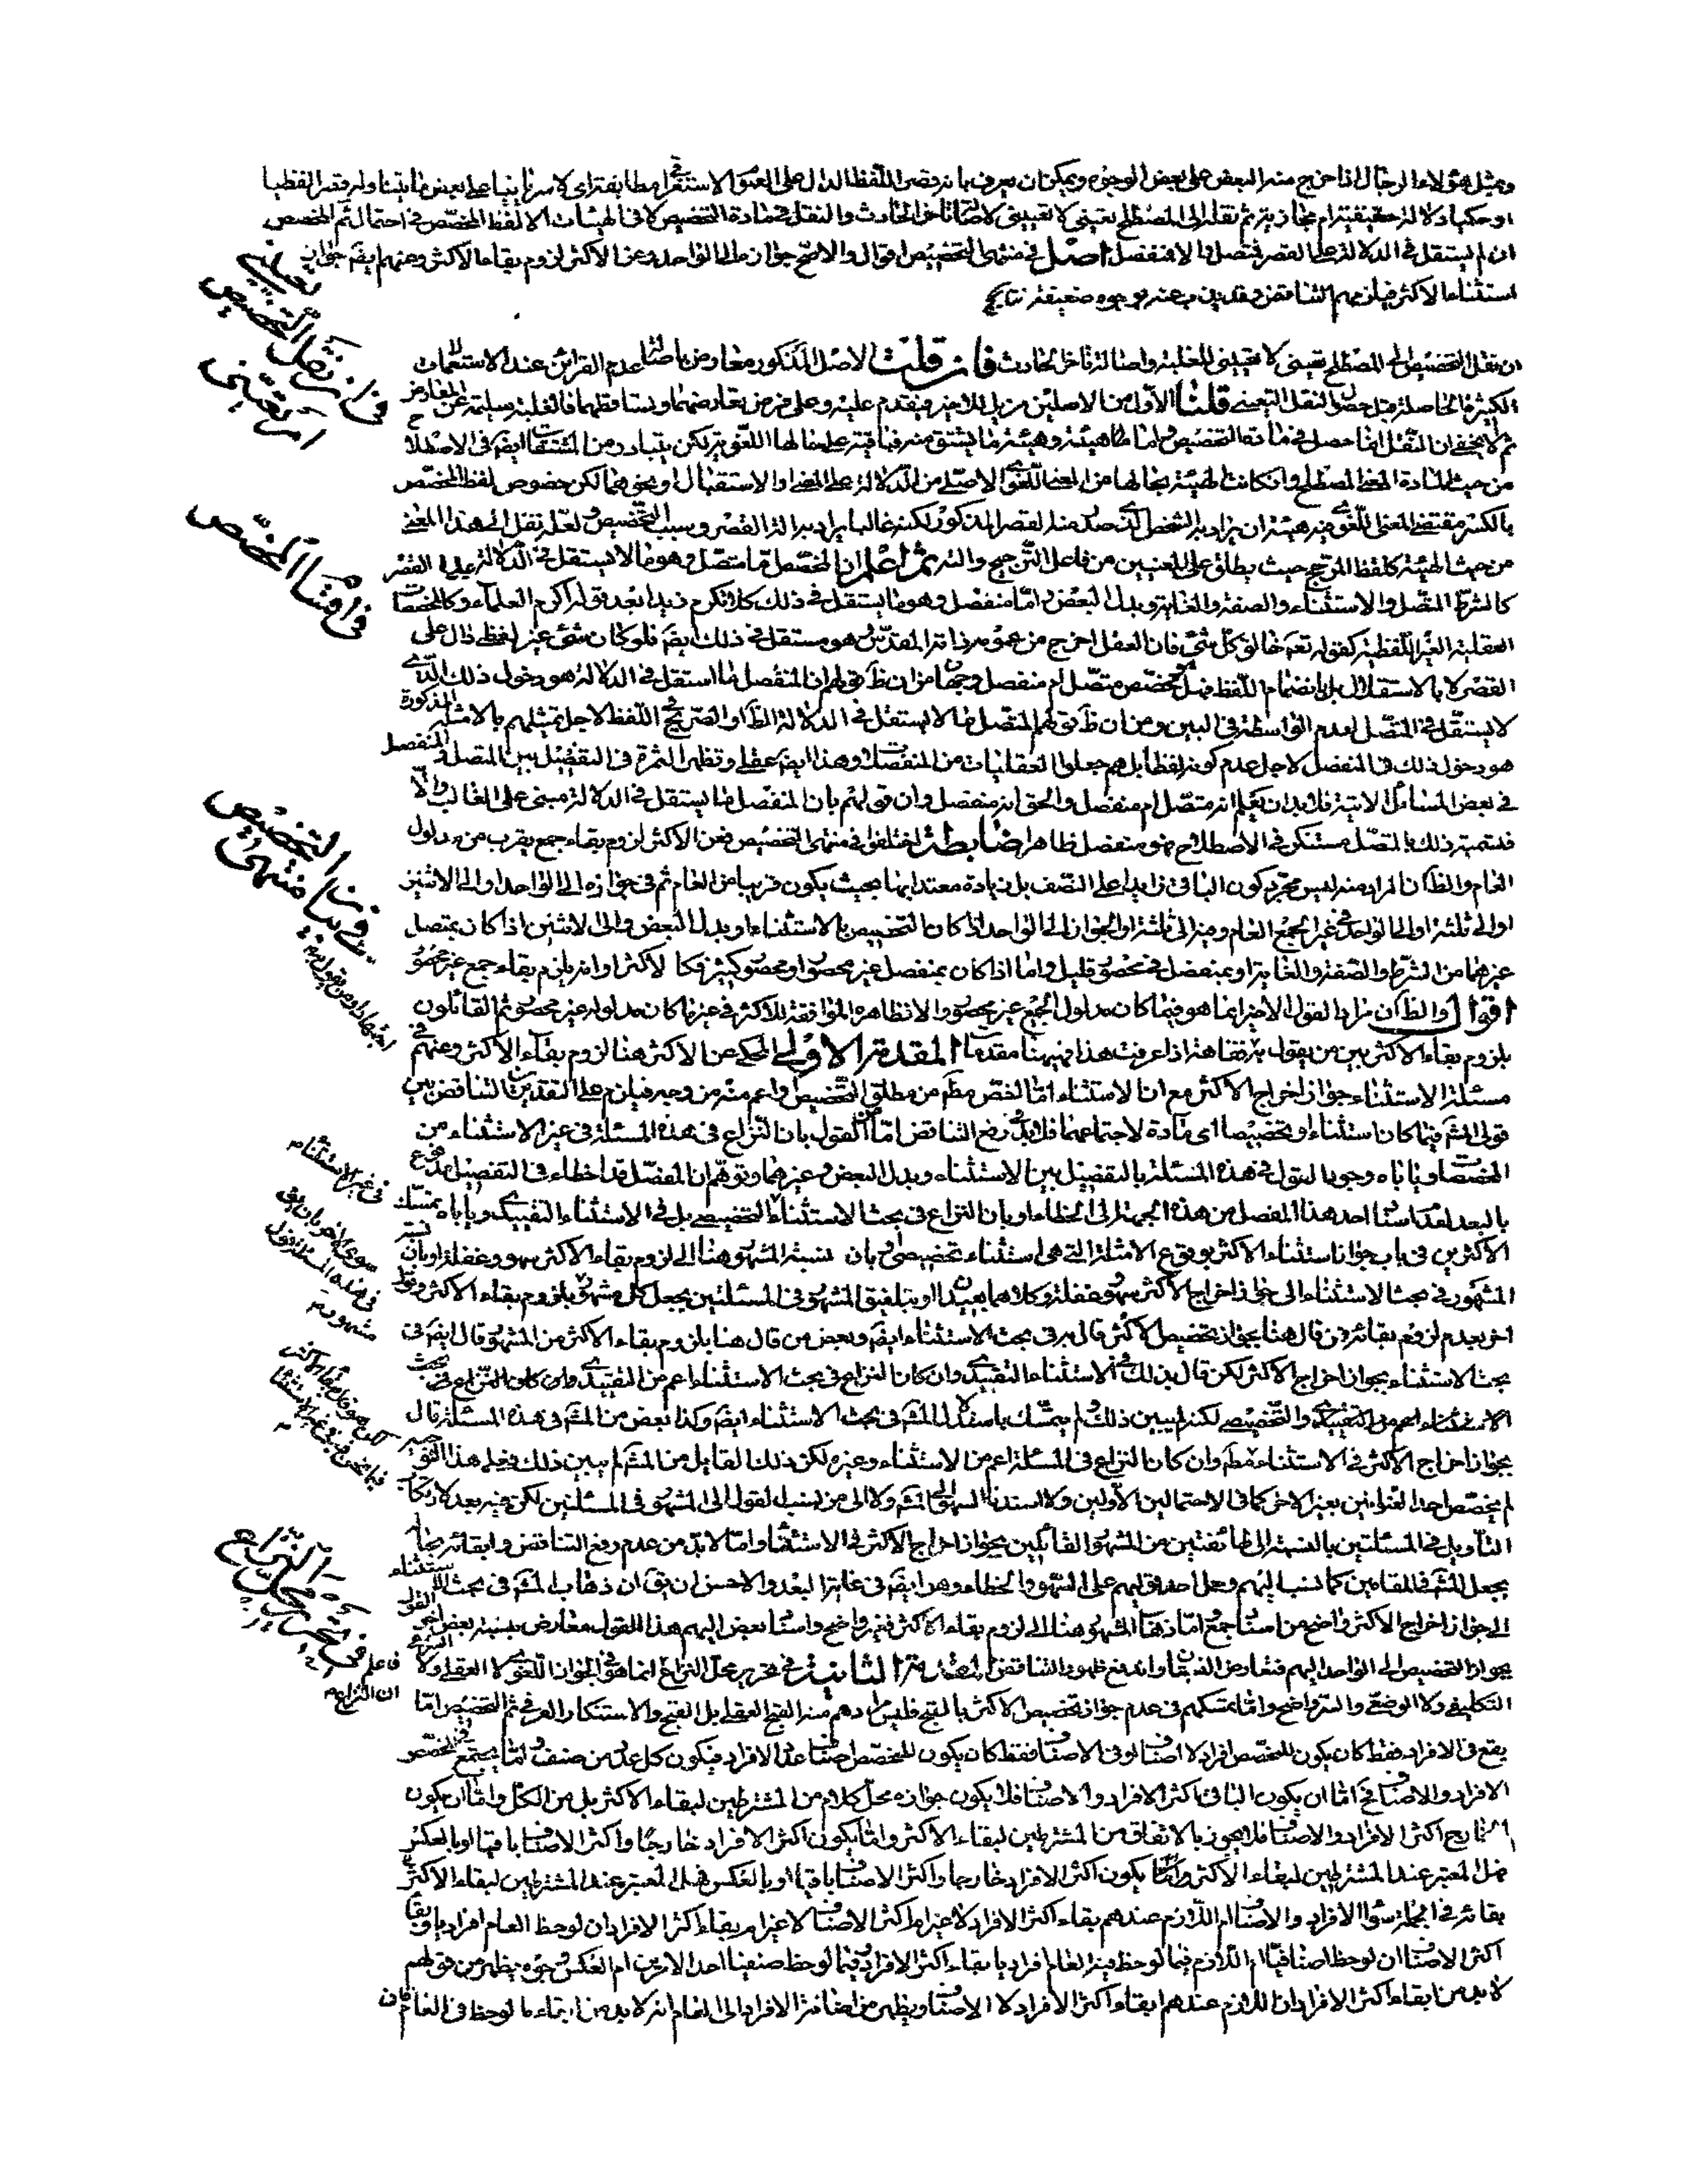 ومثل هؤلاء الرجال اذا خرج منه البعض على بعض الوجوه ويمكن ان يعرف بانه قصر اللفظ الدال على
او حكما دلالة حقيقية ام مجازية ثم نقله الى المصطلح تعيني لا تعييني لاصالة تاخر الحادث والنقل في مادة التخصيص لا في الهيئات الا لفظ المخصص في احتمال ثم المخصص
ان لم يستقل في الدلالة على القصر فمتصل والا فمنفصل اصل في منتهى التخصيص اقوال والاصح جوازه الى الواحد وعن الاكثر لزوم بقاء الاكثر وعنهم ايضا جواز
استثناء الاكثر فيلزمهم التناقض وقد يذب عنه بوجوه ضعيفة
ان نقل التخصيص الى المصطلح تعيني لا تعييني للغلبة واصالة تاخر الحادث فان قلت الاصل المذكور معارض باصالة عدم القرائن عند الاستعمالات
الكثيرة الحاصلة قبل حصول النقل التعيني قلنا الاول من الاصلين مزيل للاخير فيقدم عليه وعلى فرض تعارضهما وتساقطهما فالغلبة سليمة عن المعارض
ثم لا يخفى ان النقل انما حصل في مادة التخصيص واما هيئته وهيئة ما يشتق منه فباقية على حالها اللغوية لكن يتبادر من المشتقات ايضا في الاصطلاح
من حيث المادة المعنى المصطلح وان كانت الهيئة بحالها من المعنى اللغوي الاصلي من الدلالة على المضي او الاستقبال او نحوهما لكن خصوص لفظ المخصص
بالكسر مقتضى المعنى اللغوي فيه هيئة ان يراد به الشخص الذي صدر منه القصر المذكور لكنه غالبا يراد به الة القصر وسبب التخصيص ولعله نقل الى هذا المعنى
من حيث الهيئة كلفظ المرجح حيث يطلق على المعنيين من فاعل الترجيح والته ثم اعلم ان المخصص اما متصل وهو ما لا يستقل في الدلالة على القصر
كالشرط المتصل والاستثناء والصفة والغاية وبدل البعض واما منفصل وهو ما يستقل في ذلك كلا تكرم زيدا بعد قوله اكرم العلماء وكالمخصصات
العقلية الغير اللفظية كقوله تعالى خالق كل شيء فان العقل اخرج من عمومه ذاته المقدس وهو مستقل في ذلك ايضا فلو كان شيء غير لفظي دال على
القصر لا بالاستقلال بل بانضمام اللفظ فهل مخصص متصل ام منفصل وجهان من ان ظاهر قولهم ان المنفصل ما استقل في الدلالة هو دخول ذلك الذي
لا يستقل في المتصل لعدم الواسطة في البين ومن ان ظاهر قولهم المتصل ما لا يستقل في الدلالة الظاهر او الصريح في اللفظ لاجل تمثيلهم بالامثلة المذكورة
هو دخول ذلك في المنفصل لاجل عدم كونه لفظا بل هم جعلوا العقليات من المنفصلات وهذا ايضا عقلي وتظهر الثمرة في التفصيل بين المتصل والمنفصل
في بعض المسائل الاتية فلا بد ان يعلم انه متصل ام منفصل والحق انه منفصل وان قولهم بان المنفصل ما يستقل في الدلالة مبني على الغالب والا
فتسمية ذلك بالمتصل مستنكر في الاصطلاح فهو منفصل ظاهرا ضابطة اختلفوا في منتهى التخصيص فعن الاكثر لزوم بقاء جمع يقرب من مدلول
العام والظاهر ان المراد منه ليس مجرد كون الباقي زايدا على النصف بل زيادة معتدا بها بحيث يكون قريبا من العام ثم في جوازه الى الواحد او الى الاثنين
او الى ثلثة او الى الواحد في غير الجمع العام ومنه الى ثلثة او الجواز الى الواحد اذا كان التخصيص بالاستثناء او بدل البعض والى الاثنين اذا كان بمتصل
غيرهما من الشرط والصفة والغاية او بمنفصل في محصور قليل واما اذا كان بمنفصل غير محصور او محصور كثير فكالاكثر او انه يلزم بقاء جمع غير محصور
اقوال والظاهر ان مراد القول الاخير انما هو فيما كان مدلول الجمع غير محصور والا فظاهره الموافقة للاكثر في غير ما كان مدلوله غير محصور ثم القائلون
بلزوم بقاء الاكثر بين من يقول اذا عرفت هذا فههنا مقدمات المقدمة الاولى المحكي عن الاكثر هنا لزوم بقاء الاكثر وعنهم في
مسئلة الاستثناء جواز اخراج الاكثر مع ان الاستثناء اما اخص مطلقا من مطلق التخصيص او اعم منه من وجه فيلزم على التقديرين التناقض بين
قولي المشهور فيما كان استثناء وتخصيصا اي مادة الاجتماعهما فلا بد من رفع التناقض اما بالقول بان النزاع في هذه المسئلة في غير الاستثناء من
المخصصات وياباه وجود القول في هذه المسئلة بالتفصيل بين الاستثناء وبدل البعض وغيرهما وتوهم ان المفصل قد اخطاء في التفصيل مدفوع
بالبعد لعدم اسناد احد هذا المفصل من هذه الجهة الى الخطاء او بان النزاع في بحث الاستثناء ليس في الاستثناء التخصيصي بل في الاستثناء التقييدي وياباه تمسك
الاكثرين في باب جواز استثناء الاكثر بوقوع الامثلة التي هي استثناء تخصيصي او بان نسبة المشهور هنا الى لزوم بقاء الاكثر سهو وغفلة او بان نسبة
المشهور في بحث الاستثناء الى جواز اخراج الاكثر سهو وغفلة وكلاهما بعيدان او بتلفيق المشهور في المسئلتين بجعل كل مشهور بلزوم بقاء الاكثر
اخر بعدم لزوم بقائه ومن قال هنا بجواز تخصيص الاكثر قال به في بحث الاستثناء ايضا وبعض من قال هنا بلزوم بقاء الاكثر من المشهور قال ايضا في
بحث الاستثناء بجواز اخراج الاكثر لكن قال بذلك في الاستثناء التقييدي وان كان النزاع في بحث الاستثناء اعم من التقييدي وان كان النزاع في بحث
الاستثناء اعم من التقييدي والتخصيصي لكنه لم يبين ذلك ولم يتمسك باستدلال المشهور في بحث الاستثناء ايضا وكذا بعض من المشهور في هذه المسئلة قال
بجواز اخراج الاكثر في الاستثناء مطلقا وان كان النزاع في المسئلة اعم من الاستثناء وغيره لكن ذلك القايل من المشهور لم يبين ذلك فعلى هذا التوجيه
لم يخصص احد النزاعين بغير الاخر كما في الاحتمالين الاولين ولا اسندنا السهو الى المشهور ولا الى من ينسب القول الى المشهور في المسئلتين لكن فيه بعد لارتكاب
التاويل في المسئلتين بالنسبة الى طائفتين من المشهور القائلين بجواز اخراج الاكثر في الاستثناء واما لا بد من عدم رفع التناقض وابقائه بحاله
بجعل المشهور في المقامين كما نسب اليهم وحمل احد قوليهم على السهو والخطاء وهو ايضا في غاية البعد والاحسن ان يق ان ذهاب المشهور في بحث الاستثناء
الى جواز اخراج الاكثر واضح من اسناد جمع اما ذهاب المشهور هنا الى لزوم بقاء الاكثر فغير واضح واسناد بعض اليهم هذا القول معارض بنسبة بعض اخر القول
بجواز التخصيص الى الواحد اليهم فتعارض النسبتان واندفع ظهور التناقض المقدمة الثانية في تحرير محل النزاع انما هو في الجواز اللغوي لا العقلي ولا
التكليفي ولا الوضعي والسر واضح واما تمسكهم في عدم جواز تخصيص الاكثر بالقبح فليس مرادهم منه القبح العقلي بل القبح والاستنكار العرفي ثم التخصيص اما
يقع في الافراد فقط كان يكون للمخصص افراد لا اصناف او في الاصناف فقط كان يكون للمخصص اصناف عدد الافراد فيكون كل عدد من صنف واما يجتمع في المخصص
الافراد والاصناف فح اما ان يكون الباقي اكثر الافراد والاصناف فلا يكون جوازه محل كلام من المشترطين لبقاء الاكثر بل من الكل واما ان يكون
الخارج اكثر الافراد والاصناف فلا يجوز بالاتفاق من المشترطين لبقاء الاكثر واما يكون اكثر الافراد خارجا واكثر الاصناف باقيا او بالعكس
فهل المعتبر عند المشترطين لبقاء الاكثر واما يكون اكثر الافراد خارجا واكثر الاصناف باقيا او بالعكس فهل المعتبر عند المشترطين لبقاء الاكثر
بقائه في الجملة سواء الافراد والاصناف ام اللازم عندهم بقاء اكثر الافراد لا غير ام اكثر الاصناف لا غير ام بقاء اكثر الافراد ان لوحظ العام افراديا وبقاء
اكثر الاصناف ان لوحظ اصنافيا ام اللازم فيما لوحظ فيه العام افراديا بقاء اكثر الافراد وفيما لوحظ صنفيا احد الامرين ام العكس وجوه يظهر من قولهم
لا بد من ابقاء اكثر الافراد ان اللازم عندهم ابقاء اكثر الافراد لا الاصناف ويظهر من اضافة الافراد الى العام انه لا بد من ابقاء ما لوحظ في العام فان
في ان نقل التخصيص
امر تعيني
في اقسام المخصص
في بيان منتهى التخصيص
في غير الاستثناء
في تحرير محل النزاع
فاعلم
ان النزاع